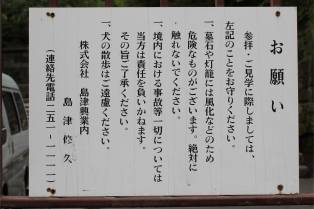 お願い
参拝・ご見学に際しましては、
左記のことをお守りください。
一、墓石や灯籠には風化などのため
危険なものがございます。絶対に
触れないでください。
一、境内における事故等一切については
当方は責任を負いかねます。
その旨ご了承ください。
一、犬の散歩はご遠慮ください。
株式会社 島津興業内
島津修久
（連絡先電話二五一-一一一一）